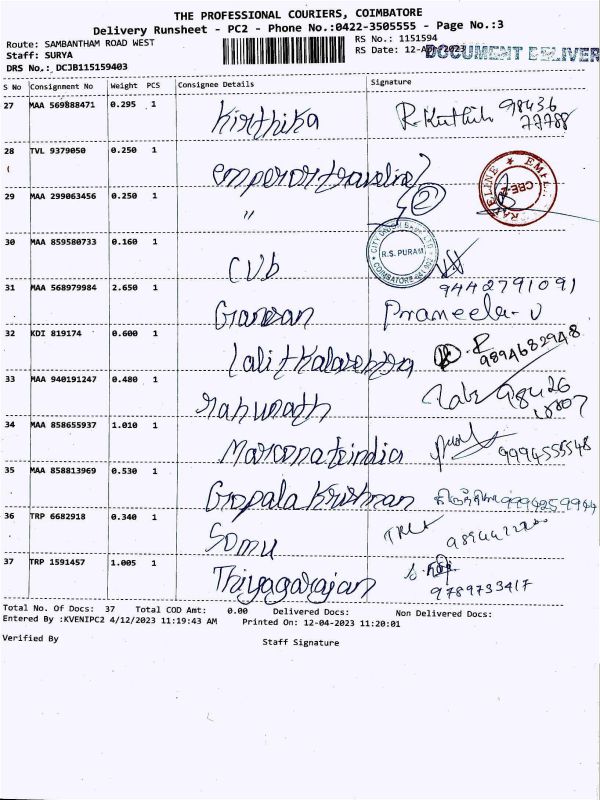 THE PROFESSIONAL COURIERS, COIMBATORE
Delivery Runsheet - PC2 - Phone No.:0422-3505555 - Page No.:3
Route: SAMBANTHAM ROAD WEST RS No.: 1151594
Staff: SURYA RS Date: 12-Apr/2023 DOCUMENT DELIVER
DRS No.: DCJB115159403
S No Consignment No Weight PCS Consignee Details Signature
27 MAA 569888471 0.295 1 Kirthika 98436
77788
28 TVL 9379050 0.250 1 emperor traveline
29 MAA 299063456 0.250 1 " 2
30 MAA 859580733 0.160 1 CUb R.S. PURAM
31 MAA 568979984 2.650 1 9442791091
Prameela-U
32 KDI 819174 0.600 1 9894682948
33 MAA 940191247 0.480 1 98426
34 MAA 858655937 1.010 1 9994555548
35 MAA 858813969 0.530 1 Gopala Krishnan 9994259944
36 TRP 6682918 0.340 1 Somu
37 TRP 1591457 1.005 1 Thiyagarajan 9789733417
Total No. Of Docs: 37 Total COD Amt: 0.00 Delivered Docs: Non Delivered Docs:
Entered By :KVENIPC2 4/12/2023 11:19:43 AM Printed On: 12-04-2023 11:20:01
Verified By Staff Signature